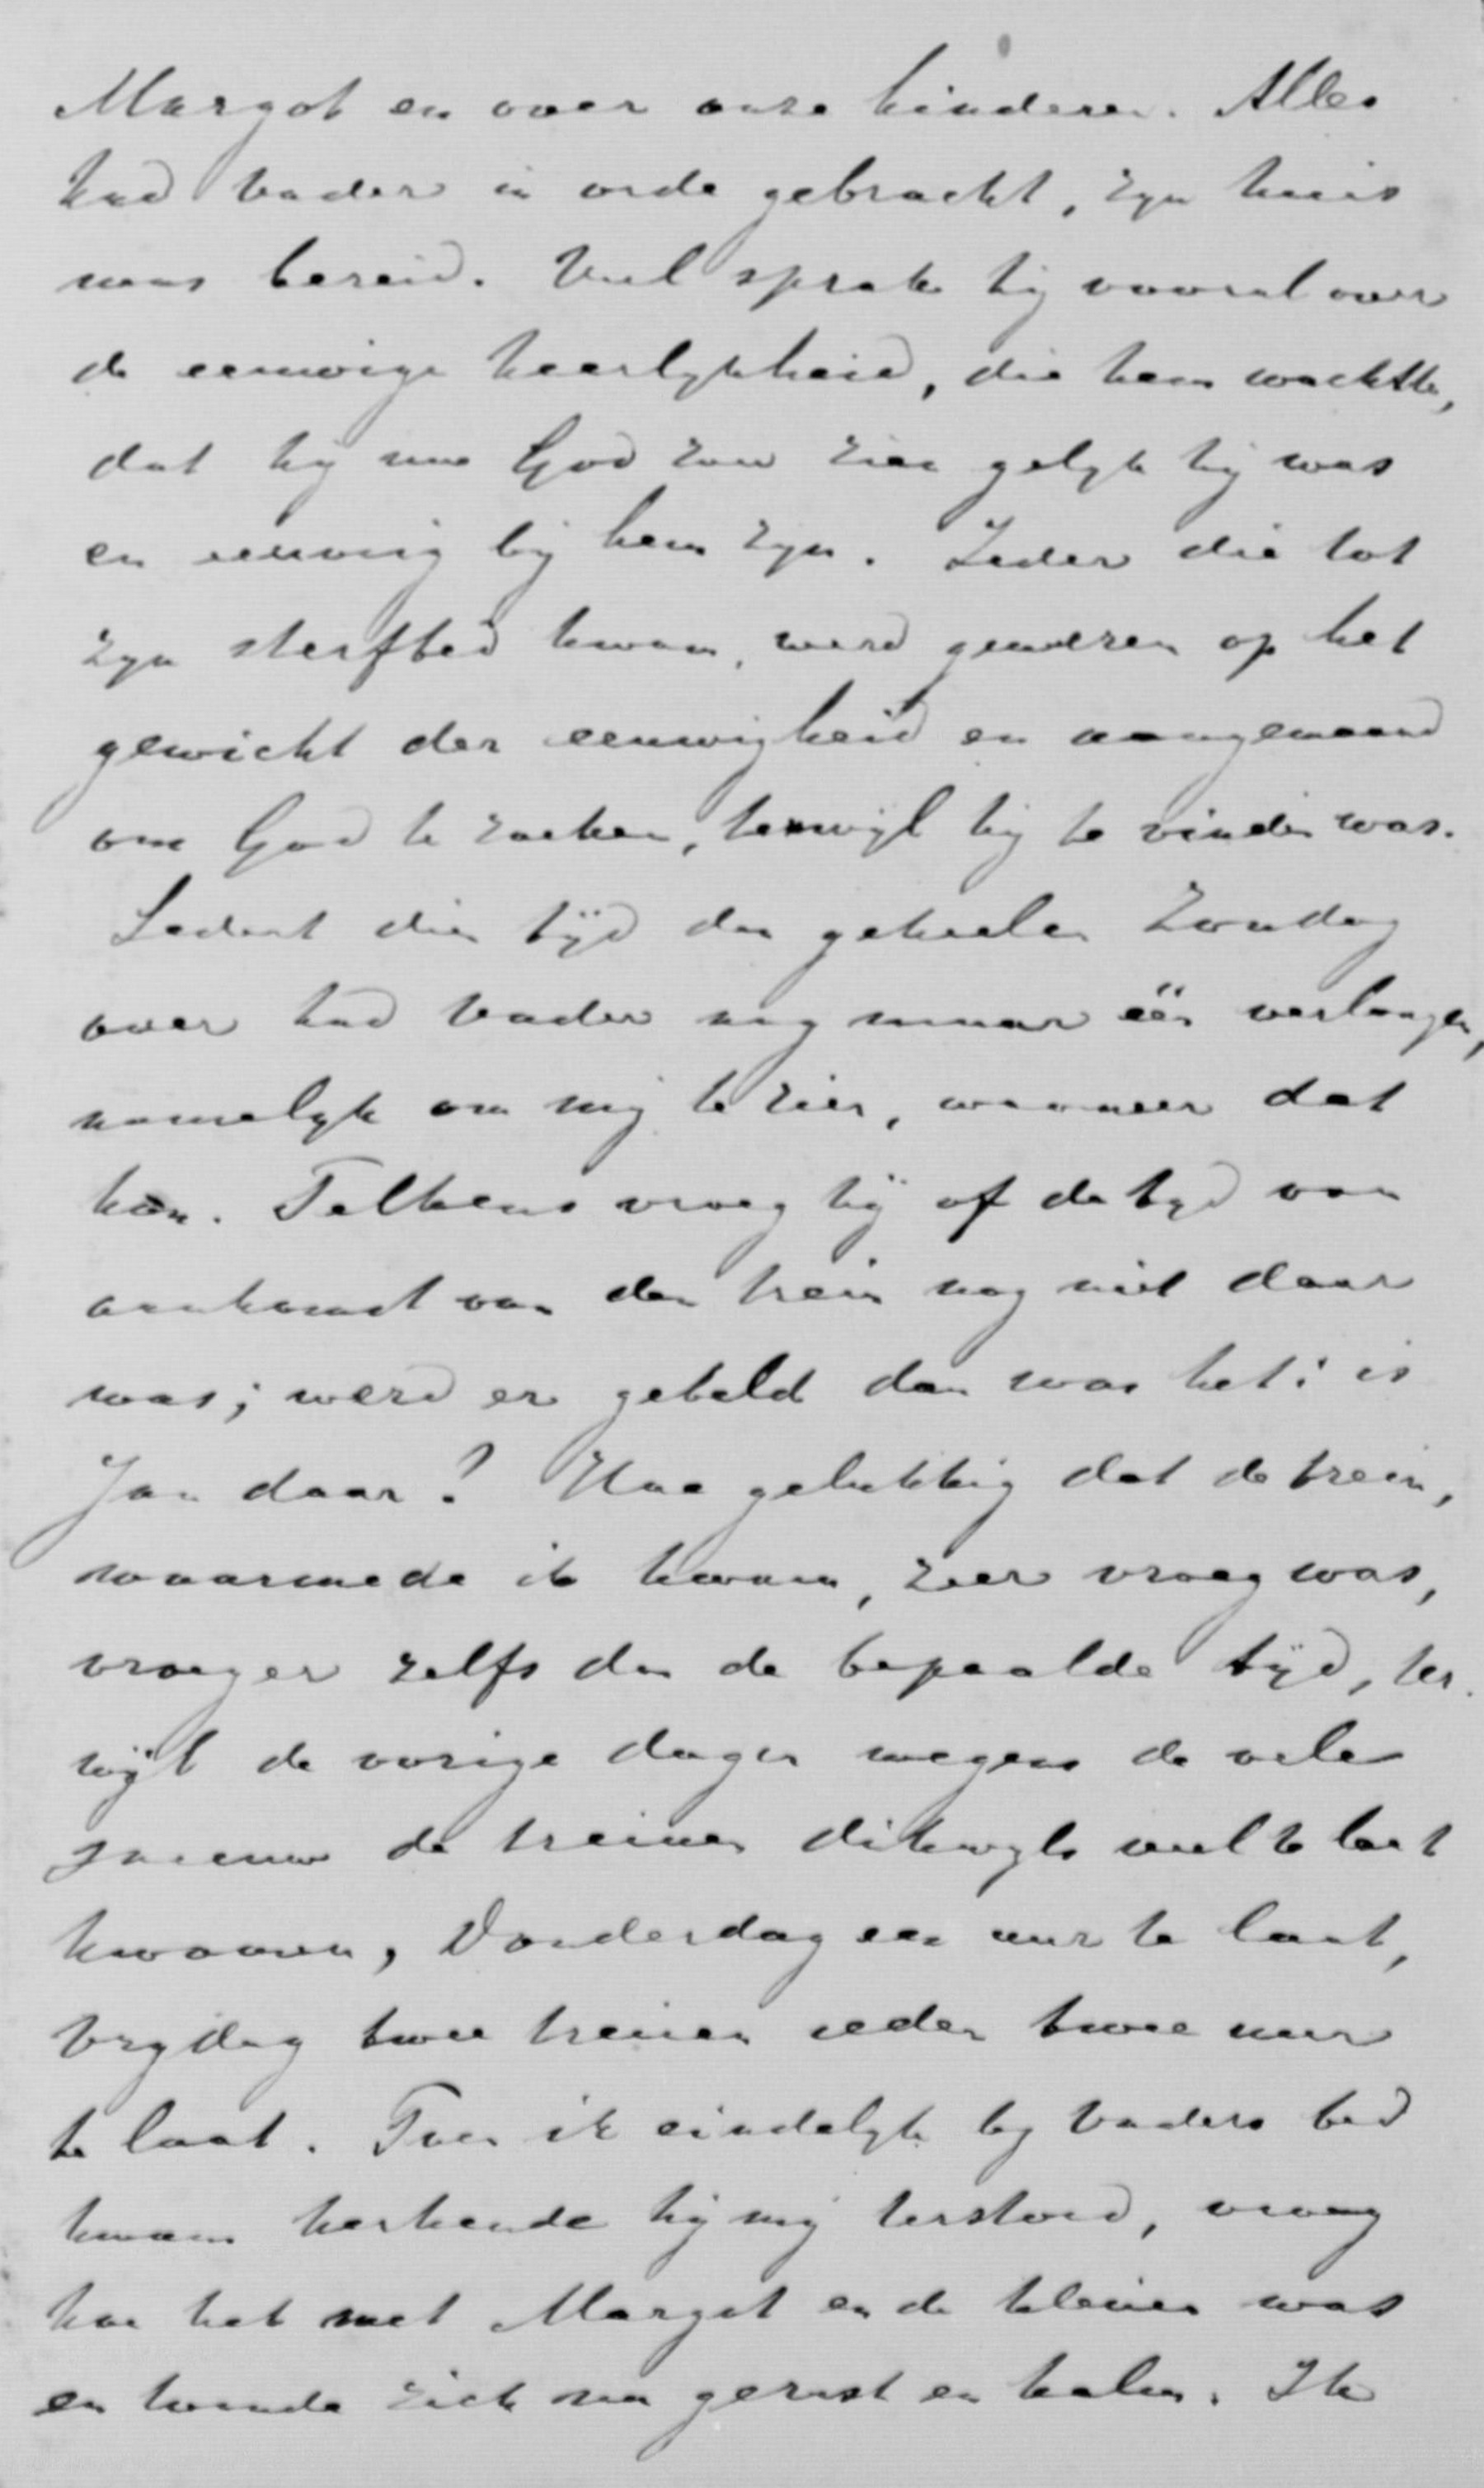 Margot en over onze kinderen. Alles
had Vader in orde gebracht, zyn huis
was bereid. Veel sprak hij vooral over
de eeuwige heerlykheid, die hem wachtte,
dat hij nu God zou zien gelyk hij was
en eeuwig bij hem zyn. Ieder die tot
zyn sterfbed kwam, werd gewezen op het
gewicht der eeuwigheid en aangemaand
om God te zoeken, terwijl hij te vinden was.
Sedert dien tijd den geheelen Zondag
over had Vader nog maar één verlangen,
namelyk om mij te zien, wanneer dat
kon. Telkens vroeg hij of de tyd van
aankomst van den trein nog niet daar
was; werd er gebeld dan was het: is
Jan daar? Hoe gelukkig dat de trein,
waarmede ik kwam, zeer vroeg was,
vroeger zelfs dan de bepaalde tijd, ter-
wijl de vorige dagen wegens de vele
sneeuw de treinen dikwyls veel te laat
kwamen, Donderdag een uur te laat,
Vrydag twee treinen ieder twee uur
te laat. Toen ik eindelyk by Vaders bed
kwam herkende hij mij terstond, vroeg
hoe het met Margot en de kleinen was
en toonde zich nu gerust en kalm. Ik